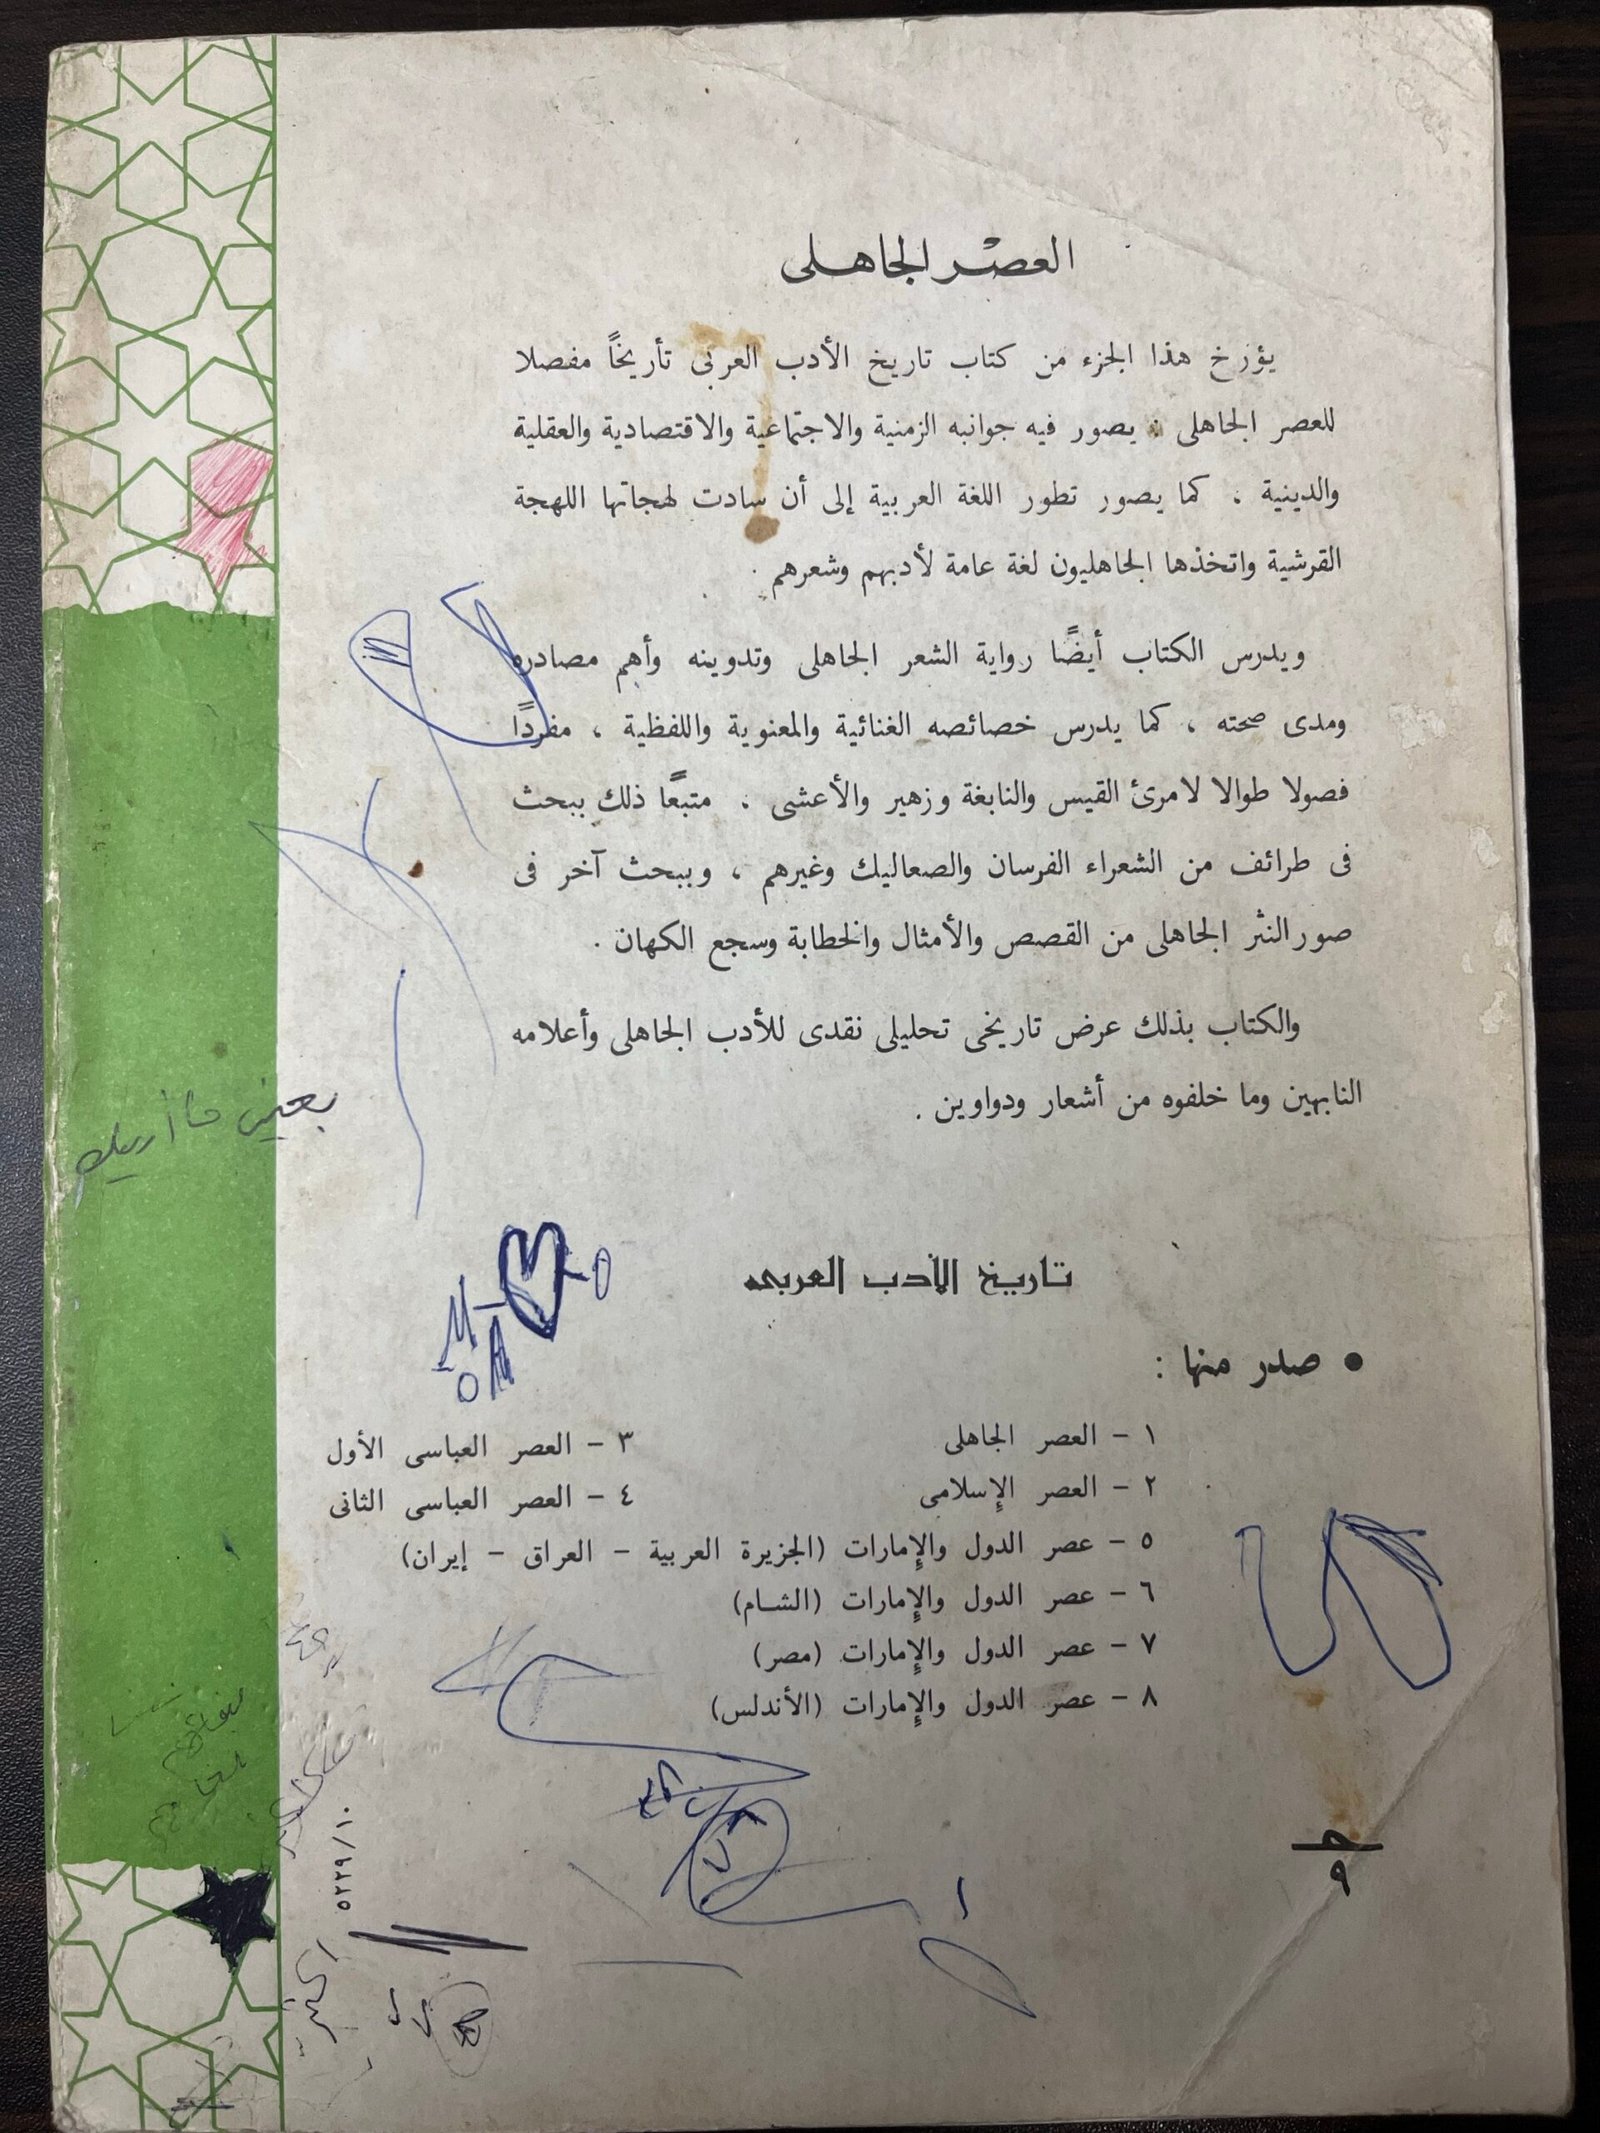 العصْر الجاهلى
يؤرخ هذا الجزء من كتاب تاريخ الأدب العربى تأريخاً مفصلا
للعصر الجاهلى : يصور فيه جوانبه الزمنية والاجتماعية والاقتصادية والعقلية
والدينية ، كما يصور تطور اللغة العربية إلى أن سادت لهجاتها اللهجة
القرشية واتخذها الجاهليون لغة عامة لأدبهم وشعرهم .
ويدرس الكتاب أيضًا رواية الشعر الجاهلى وتدوينه وأهم مصادره
ومدى صحته ، كما يدرس خصائصه الغنائية والمعنوية واللفظية ، مفردًا
فصولا طوالا لامرئ القيس والنابغة وزهير والأعشى ، متبعًا ذلك ببحث
فى طرائف من الشعراء الفرسان والصعاليك وغيرهم ، وببحث آخر فى
صور النثر الجاهلى من القصص والأمثال والخطابة وسجع الكهان .
والكتاب بذلك عرض تاريخى تحليلى نقدى للأدب الجاهلى وأعلامه
النابهين وما خلفوه من أشعار ودواوين .
تاريخ الأدب العربى
• صدر منها :
١ - العصر الجاهلى
٣ - العصر العباسى الأول
٢ - العصر الإسلامى
٤ - العصر العباسى الثانى
٥ - عصر الدول والإمارات (الجزيرة العربية - العراق - إيران)
٦ - عصر الدول والإمارات (الشام)
٧ - عصر الدول والإمارات (مصر)
٨ - عصر الدول والإمارات (الأندلس)
٥٢٢٩/١٠